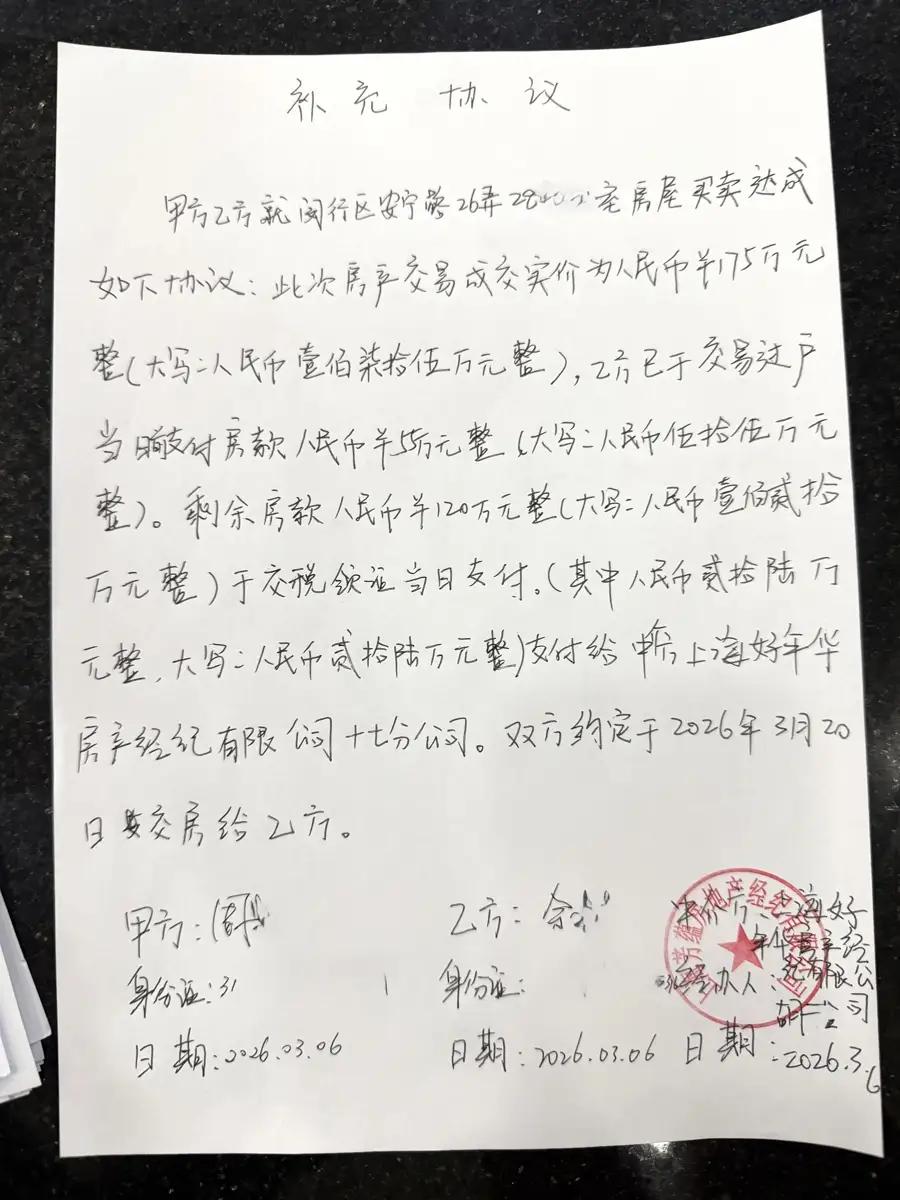 补充 协议
甲方乙方就闵行区安宁路26弄28 室房屋买卖达成
如下协议：此次房产交易成交实价为人民币￥175万元
整（大写：人民币壹佰柒拾伍万元整），乙方已于交易过户
当日支付房款人民币￥55万元整（大写：人民币伍拾伍万元
整）。剩余房款人民币￥120万元整（大写：人民币壹佰贰拾
万元整）于交税领证当日支付。（其中人民币贰拾陆万
元整，大写：人民币贰拾陆万元整）支付给中介上海好年华
房产经纪有限公司十七分公司。双方约定于2026年3月20
日 交房给乙方。
甲方：周
乙方：余
中介方：上海好
年华房产经
纪有限公
司
身份证：31
身份证：
经办人：
日期：2026.03.06
日期：2026.03.06
日期：2026.3.6
房地产经纪有限公司